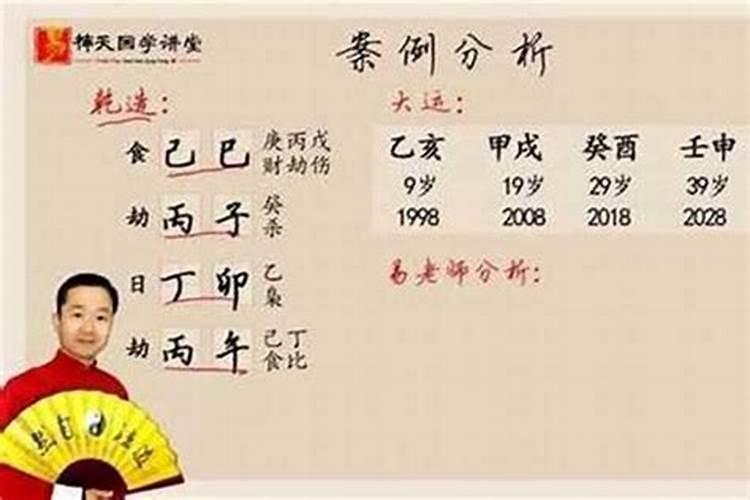 易 禅天国学讲堂
案例分析
乾造：
大运：
食 己巳 庚丙戊
财劫伤
劫 丙子 癸
杀
日 丁卯 乙
枭
劫 丙午 己丁
食比
乙亥 甲戌 癸酉 壬申
9岁 19岁 29岁 39岁
1998 2008 2018 2028
易老师分析：